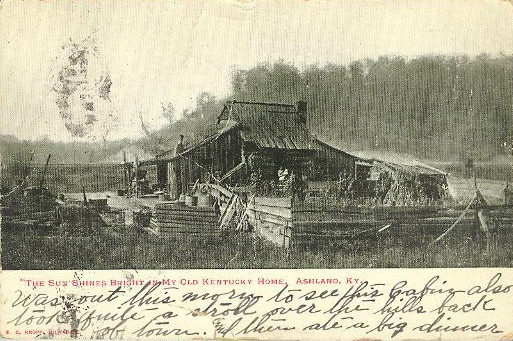 "THE SUN SHINES BRIGHT IN MY OLD KENTUCKY HOME, ASHLAND, KY.
was out this morn to see this Cabin also
took quite a stroll over the hills back
of town. & then ate a big dinner
E. C. KROPP, MILWAUKEE